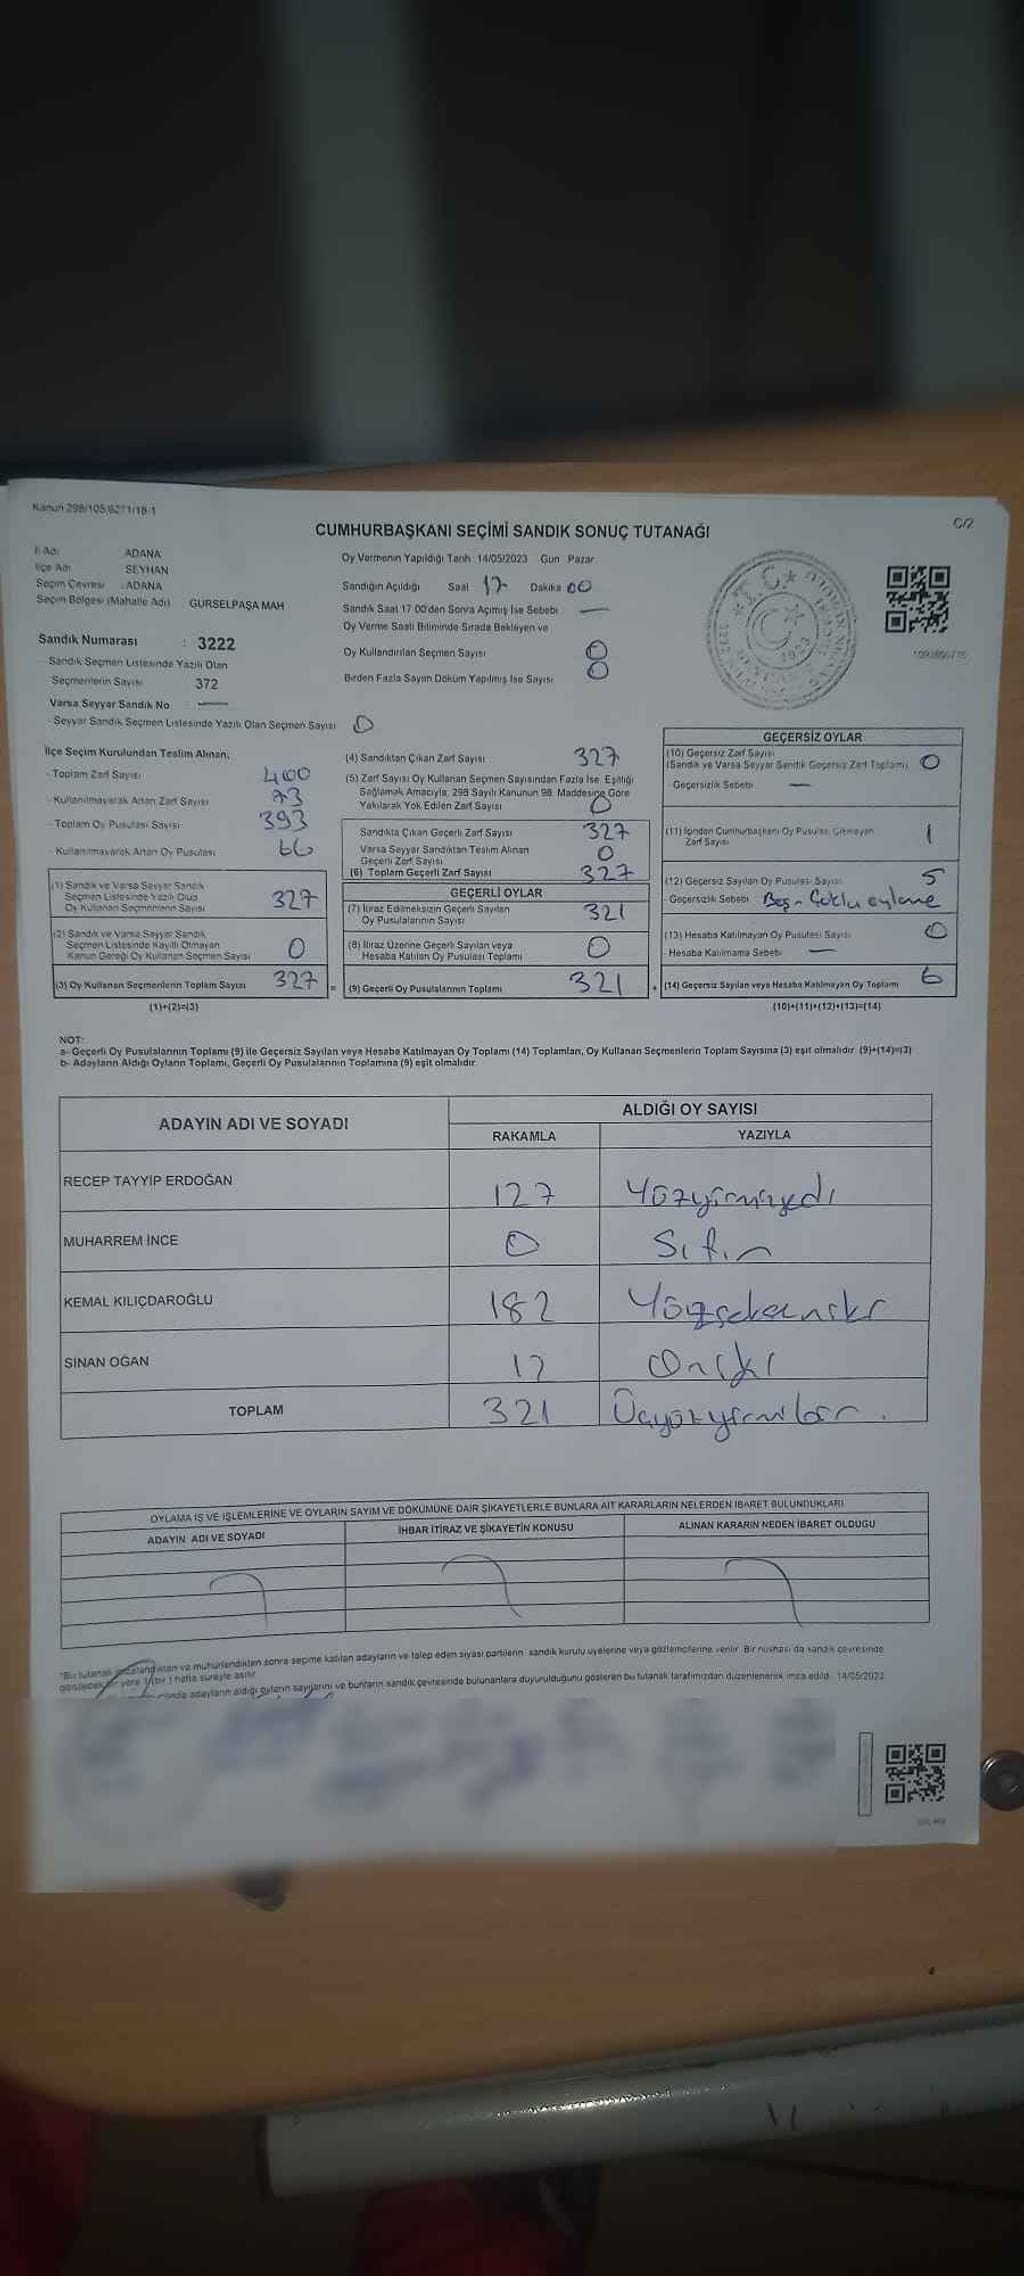 Kanun 298/105,6271/18-1
C/2
CUMHURBAŞKANI SEÇİMİ SANDIK SONUÇ TUTANAĞI
İl Adı ADANA
İlçe Adı SEYHAN
Seçim Çevresi : ADANA
Seçim Bölgesi (Mahalle Adı) GÜRSELPAŞA MAH
Sandık Numarası : 3222
Sandık Seçmen Listesinde Yazılı Olan
Seçmenlerin Sayısı 372
Varsa Seyyar Sandık No —
- Seyyar Sandık Seçmen Listesinde Yazılı Olan Seçmen Sayısı 0
Oy Vermenin Yapıldığı Tarih 14/05/2023 Gün Pazar
Sandığın Açıldığı Saat 17 Dakika 00
Sandık Saat 17.00'den Sonra Açımış İse Sebebi —
Oy Verme Saati Bitiminde Sırada Bekleyen ve
Oy Kullandırılan Seçmen Sayısı 0
Birden Fazla Sayım Döküm Yapılmış İse Sayısı 0
T.C.
1923
İlçe Seçim Kurulundan Teslim Alınan;
- Toplam Zarf Sayısı 400
- Kullanılmayarak Artan Zarf Sayısı 73
- Toplam Oy Pusulası Sayısı 393
- Kullanılmayarak Artan Oy Pusulası 66
(1) Sandık ve Varsa Seyyar Sandık
Seçmen Listesinde Yazılı Olup
Oy Kullanan Seçmenlerin Sayısı 327
(2) Sandık ve Varsa Seyyar Sandık
Seçmen Listesinde Kayıtlı Olmayan
Kanun Gereği Oy Kullanan Seçmen Sayısı 0
(3) Oy Kullanan Seçmenlerin Toplam Sayısı 327 =
(1)+(2)=(3)
(4) Sandıktan Çıkan Zarf Sayısı 327
(5) Zarf Sayısı Oy Kullanan Seçmen Sayısından Fazla İse, Eşitliği
Sağlamak Amacıyla, 298 Sayılı Kanunun 98. Maddesine Göre
Yakılarak Yok Edilen Zarf Sayısı 0
Sandıkta Çıkan Geçerli Zarf Sayısı 327
Varsa Seyyar Sandıktan Teslim Alınan
Geçerli Zarf Sayısı 0
(6) Toplam Geçerli Zarf Sayısı 327
GEÇERLİ OYLAR
(7) İtiraz Edilmeksizin Geçerli Sayılan
Oy Pusulalarının Sayısı 321
(8) İtiraz Üzerine Geçerli Sayılan veya
Hesaba Katılan Oy Pusulası Toplamı 0
(9) Geçerli Oy Pusulalarının Toplamı 321 +
GEÇERSİZ OYLAR
(10) Geçersiz Zarf Sayısı
(Sandık ve Varsa Seyyar Sandık Geçersiz Zarf Toplamı) 0
- Geçersizlik Sebebi —
(11) İçinden Cumhurbaşkanı Oy Pusulası Çıkmayan
Zarf Sayısı 1
(12) Geçersiz Sayılan Oy Pusulası Sayısı 5
- Geçersizlik Sebebi Beş - Çoklu oylama
(13) Hesaba Katılmayan Oy Pusulası Sayısı 0
- Hesaba Katılmama Sebebi —
(14) Geçersiz Sayılan veya Hesaba Katılmayan Oy Toplamı 6
(10)+(11)+(12)+(13)=(14)
NOT:
a- Geçerli Oy Pusulalarının Toplamı (9) ile Geçersiz Sayılan veya Hesaba Katılmayan Oy Toplamı (14) Toplamları, Oy Kullanan Seçmenlerin Toplam Sayısına (3) eşit olmalıdır. (9)+(14)=(3)
b- Adayların Aldığı Oyların Toplamı, Geçerli Oy Pusulalarının Toplamına (9) eşit olmalıdır.
ADAYIN ADI VE SOYADI
ALDIĞI OY SAYISI
RAKAMLA YAZIYLA
RECEP TAYYİP ERDOĞAN 127 Yüzyirmiyedi
MUHARREM İNCE 0 Sıfır
KEMAL KILIÇDAROĞLU 182 Yüzsekseniki
SİNAN OĞAN 12 Oniki
TOPLAM 321 Üçyüzyirmibir
OYLAMA İŞ VE İŞLEMLERİNE VE OYLARIN SAYIM VE DÖKÜMÜNE DAİR ŞİKAYETLERLE BUNLARA AİT KARARLARIN NELERDEN İBARET BULUNDUKLARI
ADAYIN ADI VE SOYADI İHBAR İTİRAZ VE ŞİKAYETİN KONUSU ALINAN KARARIN NEDEN İBARET OLDUĞU
*Bu tutanak imzalandıktan ve mühürlendikten sonra seçime katılan adayların ve talep eden siyasi partilerin sandık kurulu üyelerine veya gözlemcilerine verilir. Bir nüshası da sandık çevresinde
görülecek bir yere 1 (bir) hafta süreyle asılır.
adayların aldığı oyların sayılarını ve bunların sandık çevresinde bulunanlara duyurulduğunu gösteren bu tutanak tarafımızdan düzenlenerek imza edildi. 14/05/2023